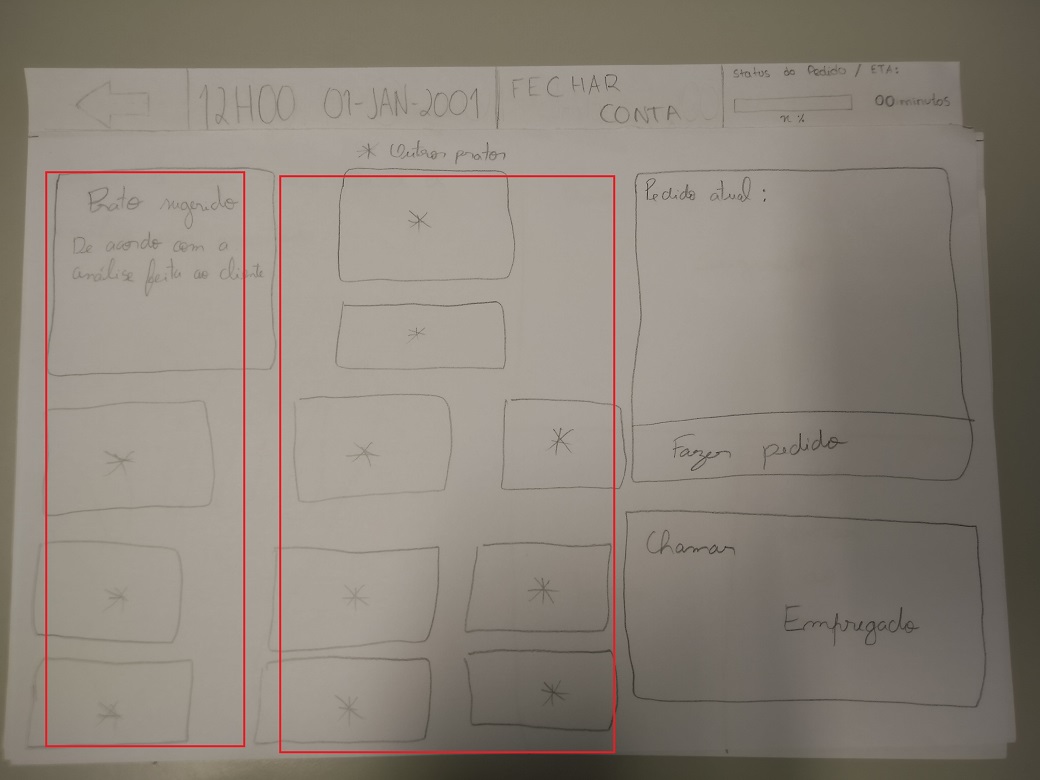 12H00 01-JAN-2001
FECHAR
CONTA
Status do Pedido / ETA:
00 minutos
x %
* Outros pratos
Prato sugerido
De acordo com a
análise feita ao cliente
*
*
*
*
*
*
*
*
*
*
*
Pedido atual:
Fazer pedido
Chamar
Empregado